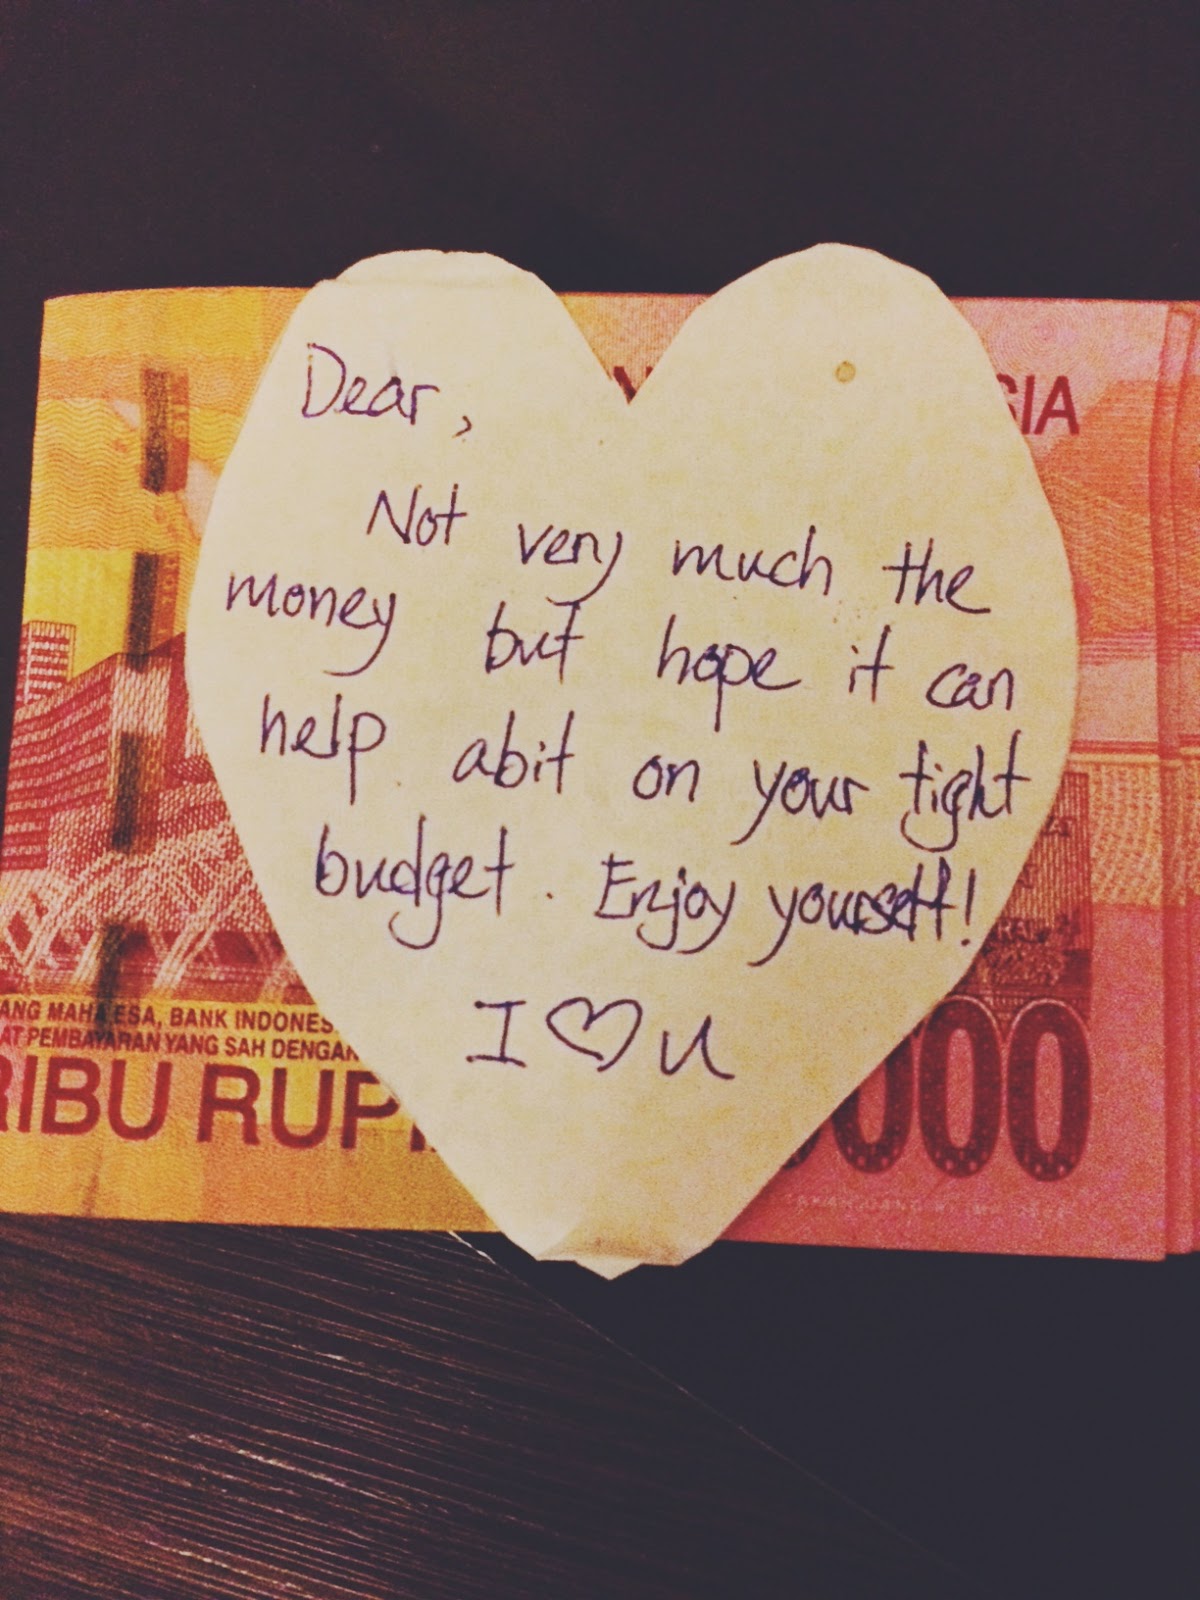 Dear,
Not very much the
money but hope it can
help abit on your tight
budget. Enjoy yourself!
I ♡ u
SIA
ANG MAHA ESA, BANK INDONES
AT PEMBAYARAN YANG SAH DENGAN
RIBU RUPI
000